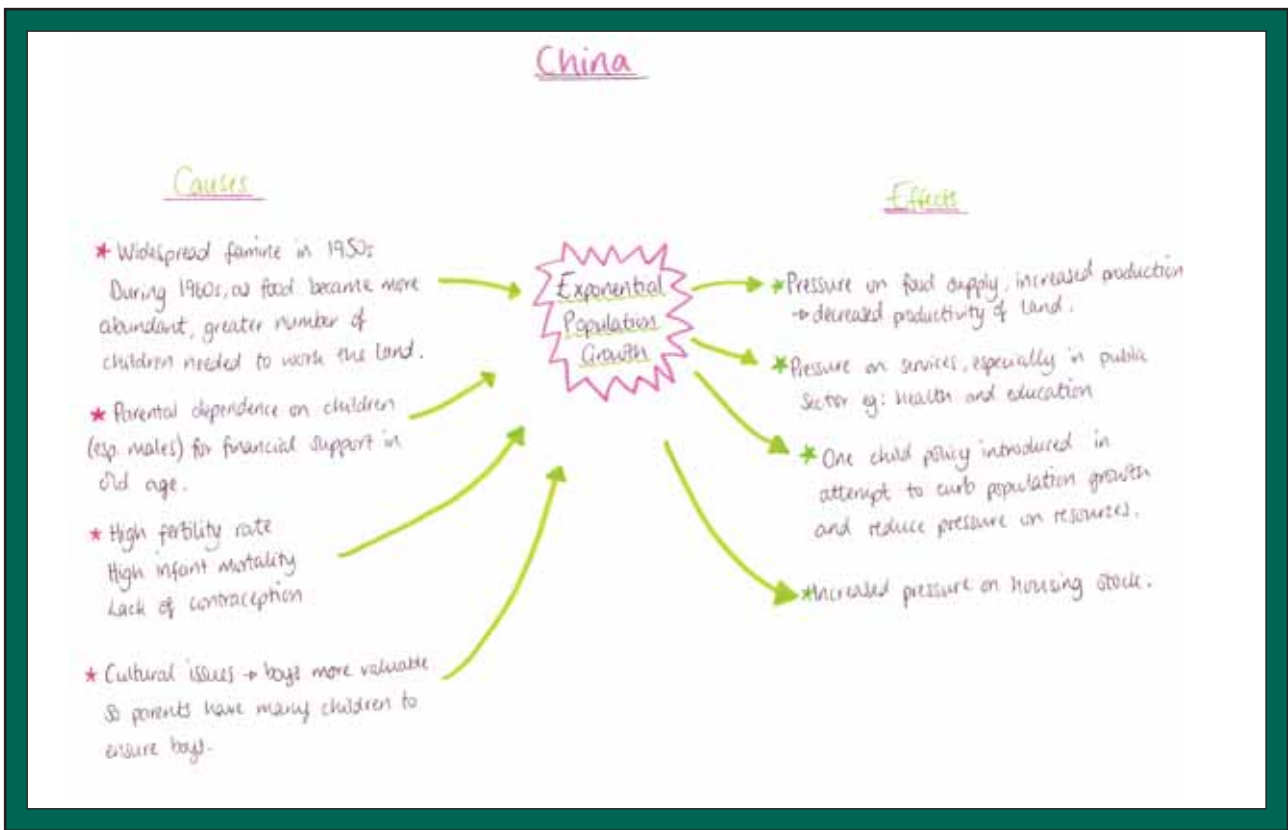 China
Causes
* Widespread famine in 1950s
During 1960s, as food became more
abundant, greater number of
children needed to work the land.
* Parental dependence on children
(esp. males) for financial support in
old age.
* High fertility rate
High infant mortality
Lack of contraception
* Cultural issues → boys more valuable
so parents have many children to
ensure boys.
Exponential
Population
Growth
Effects
* Pressure on food supply, increased production
→ decreased productivity of land.
* Pressure on services, especially in public
sector eg: health and education
* One child policy introduced in
attempt to curb population growth
and reduce pressure on resources.
* Increased pressure on housing stock.